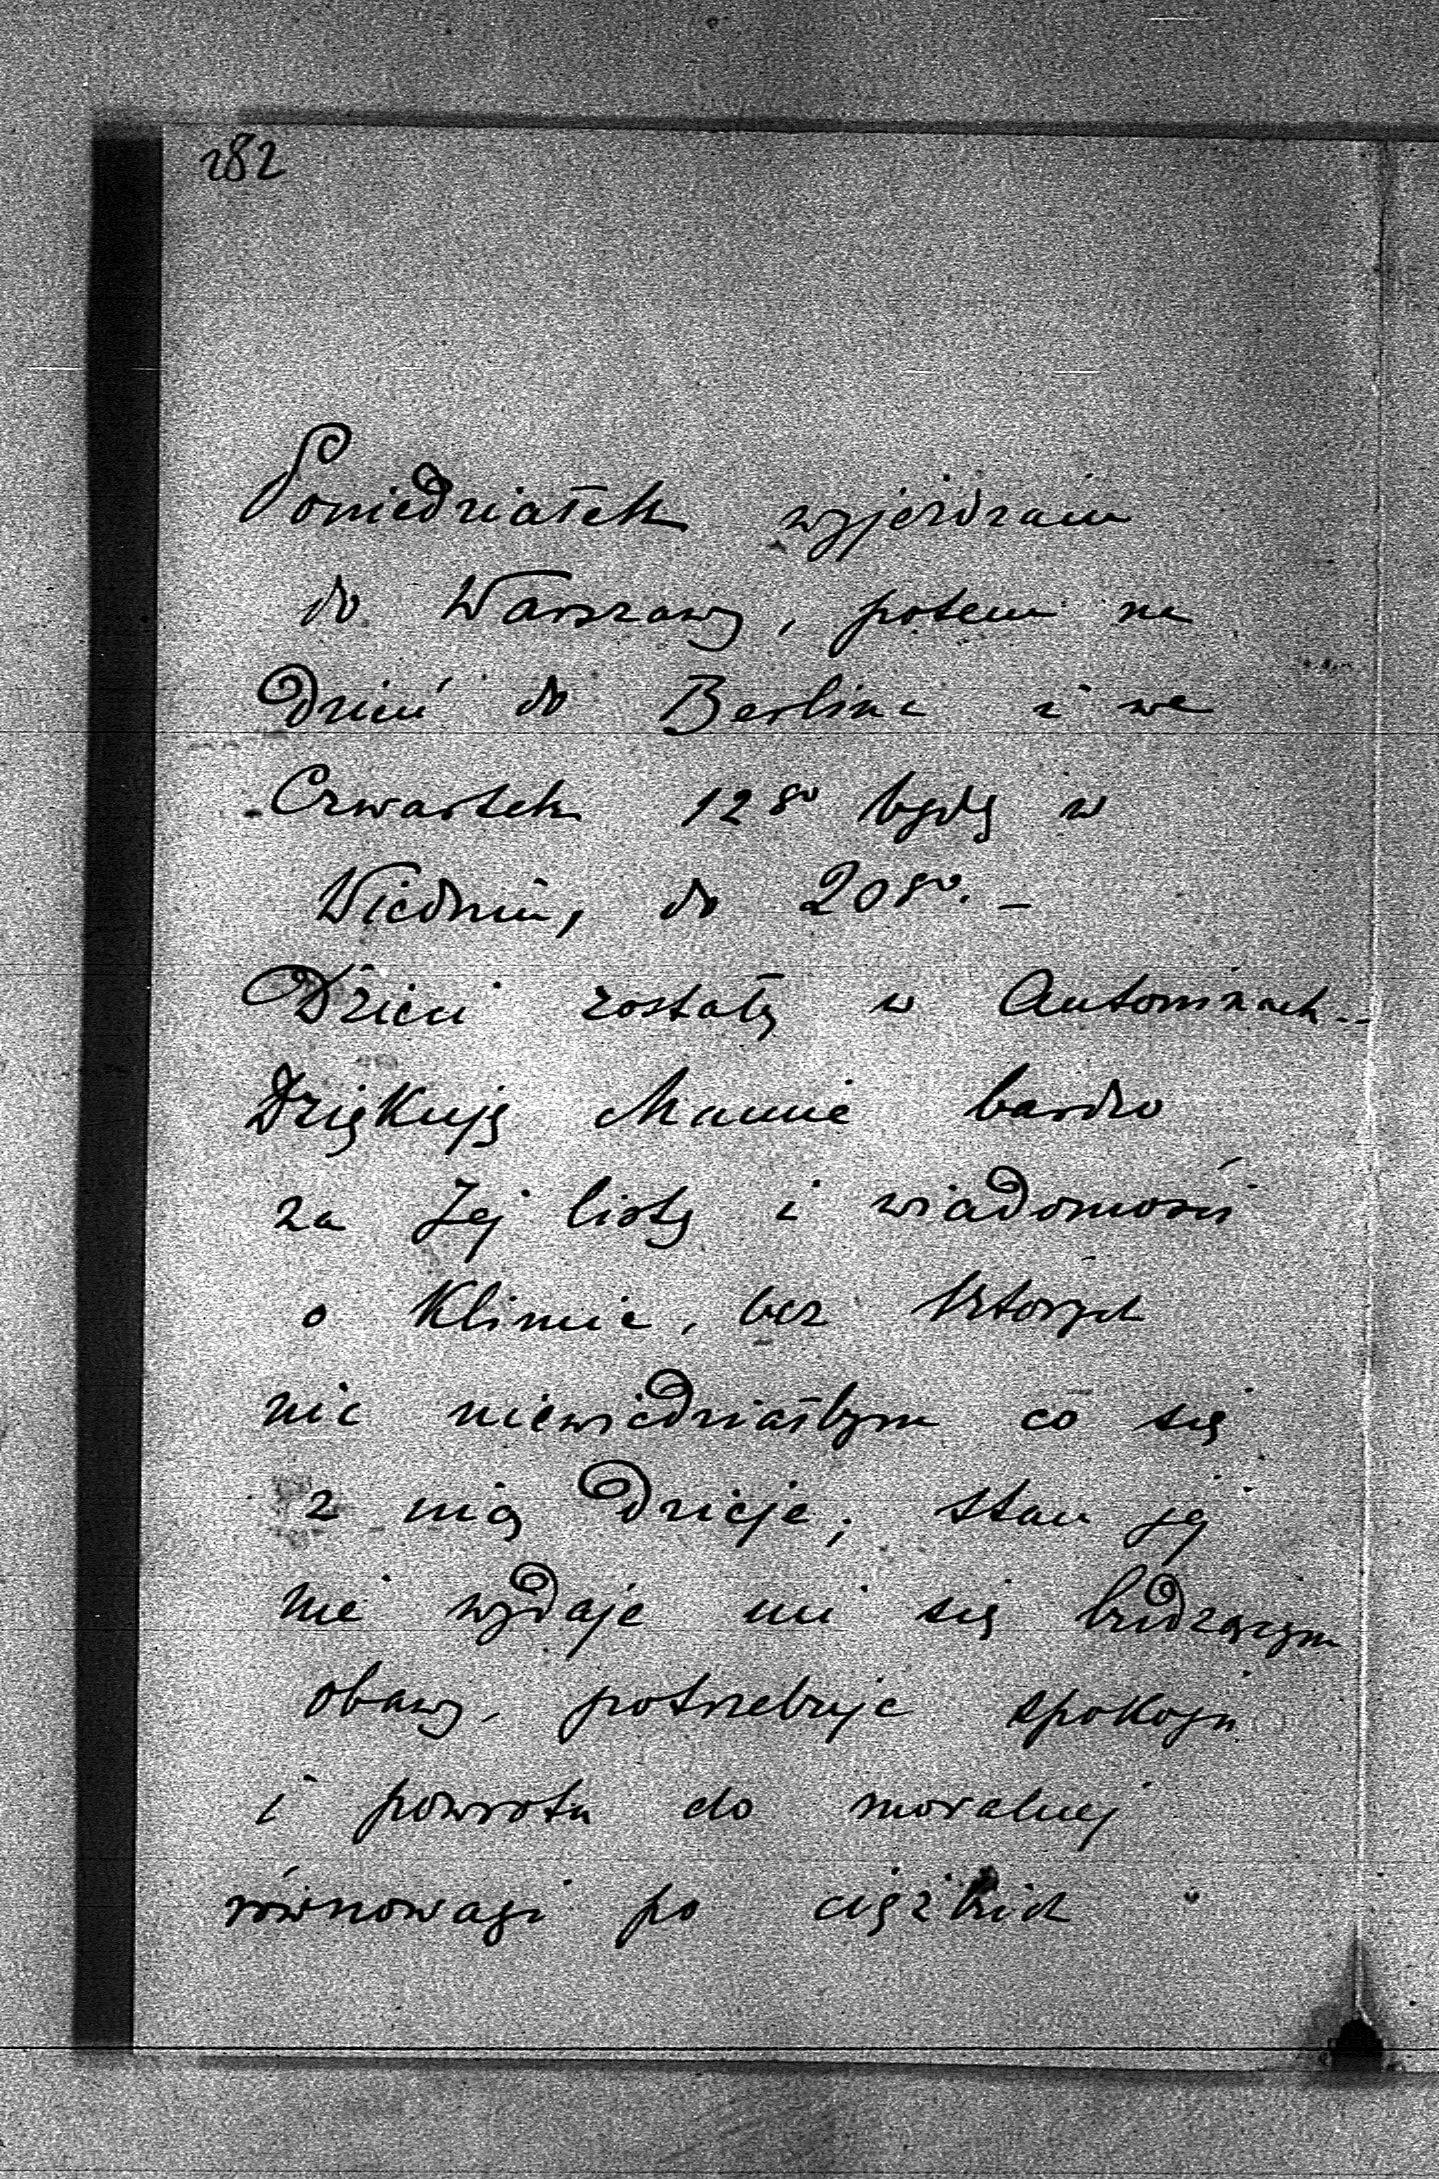 282
Poniedziałek wyjeżdzam
do Warszawy, potem na
Dzień do Berlina i we
Czwartek 12go będę w
Wiedniu, do 20go. –
Dzieci zostały w Antoninach..
Dziękuję Mamie bardzo
za Jej listy i wiadomości
o Klimie, bez których
nic niewiedziałbym co się
z nią Dzieje; stan jej
nie wydaje mi się budzącym
obawy, potrzebuje spokoju
i powrotu do moralnej
równowagi po ciężkich